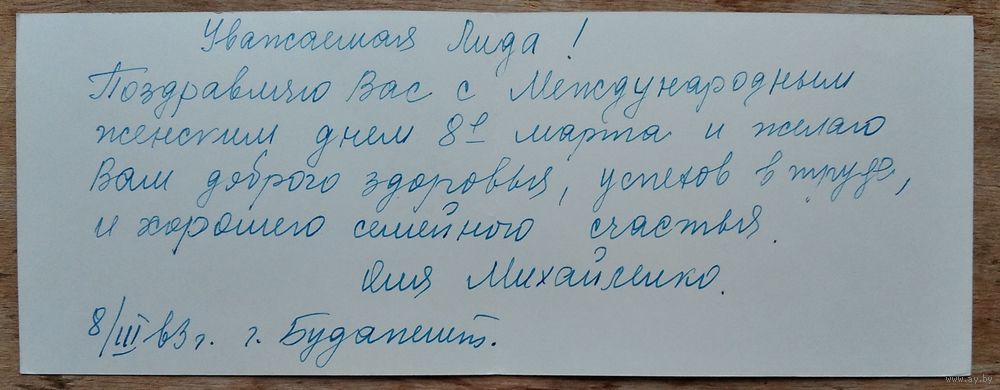 Уважаемая Лида!
Поздравляю Вас с Международным
женским днем 8е марта и желаю
Вам доброго здоровья, успехов в труде,
и хорошего семейного счастья.
Михайленко.
8/III 63 г. г. Будапешт.
www.ay.by